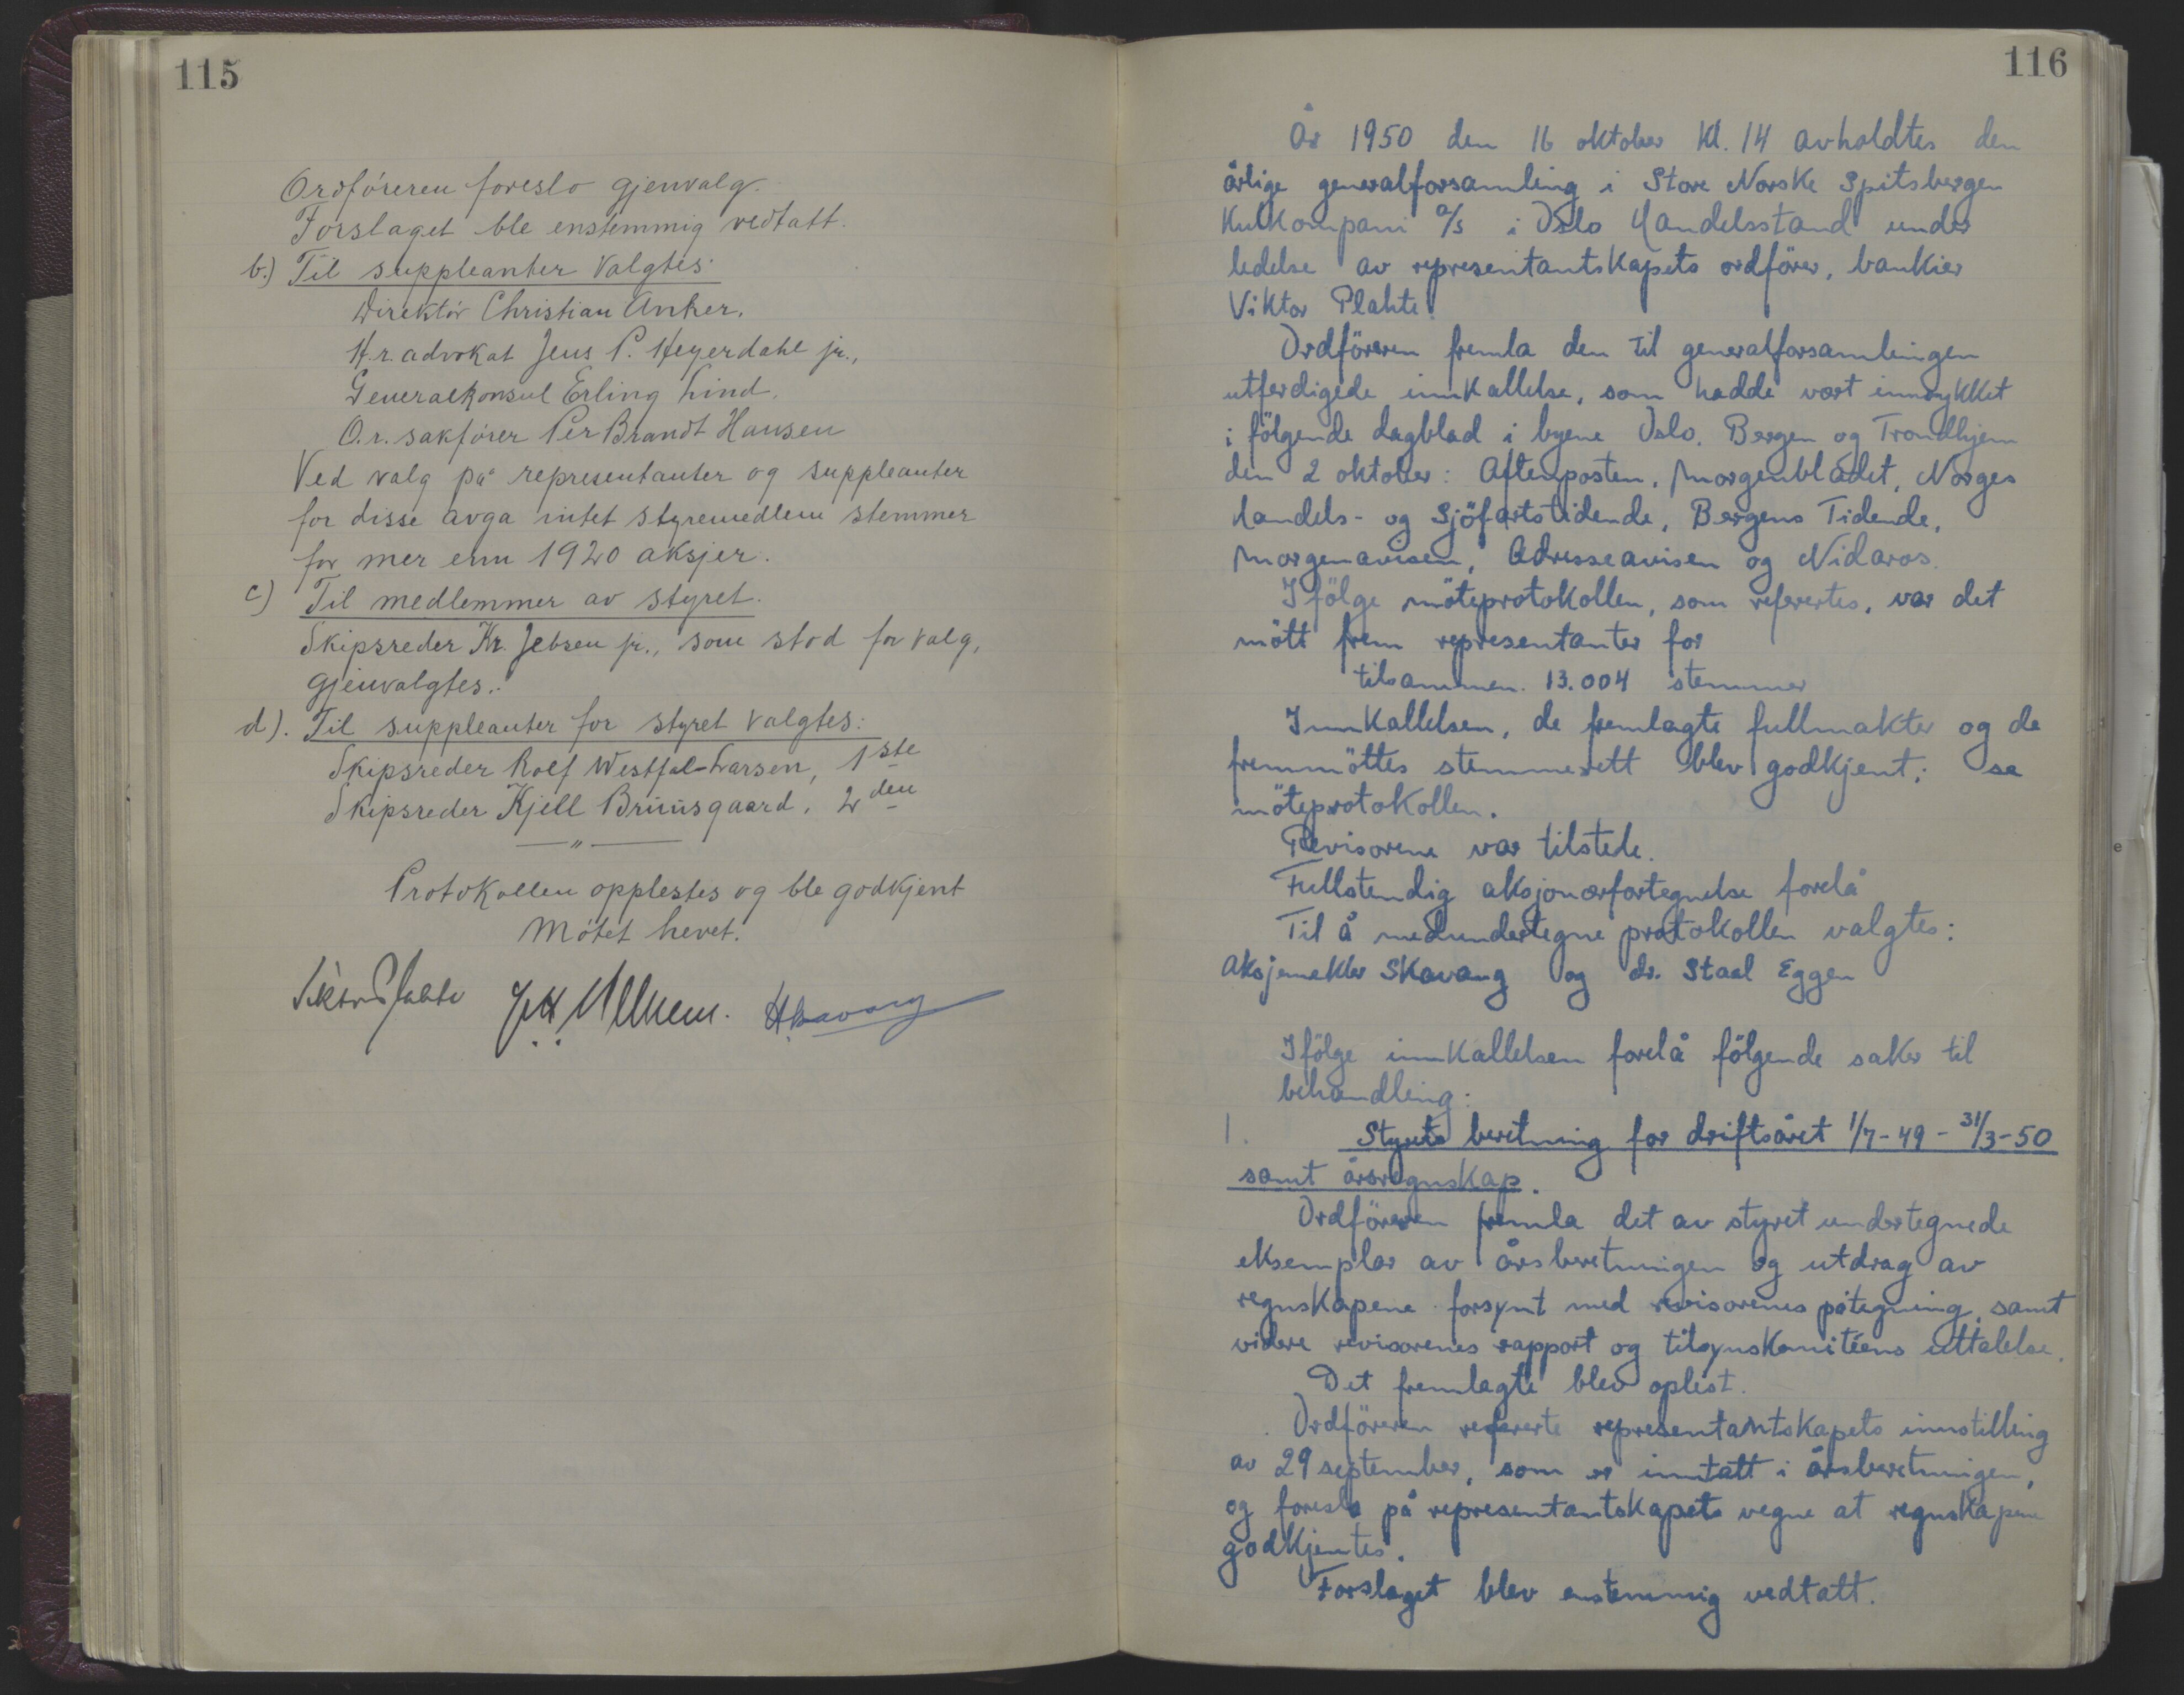 115
Ordføreren foreslo gjenvalg.
Forslaget ble enstemmig vedtatt.
b.) Til suppleanter valgtes:
Direktør Christian Anker.
H.r. advokat Jens P. Heyerdahl jr.,
Generalkonsul Erling Lind.
O.r. sakfører Per Brandt Hansen
Ved valg på representanter og suppleanter
for disse avga intet styremedlem stemmer
for mer enn 1920 aksjer.
c) Til medlemmer av styret.
Skipsreder Kr. Jebsen jr., som stod for valg,
gjenvalgtes.
d). Til suppleanter for styret valgtes:
Skipsreder Rolf Westfal-Larsen, 1ste
Skipsreder Kjell Bruusgaard, 2den
—〃—
Protokollen opplestes og ble godkjent
Møtet hevet.
Viktor Plahte HSkavang
116
År 1950 den 16 oktober kl. 14 avholdtes den
årlige generalforsamling i Store Norske Spitsbergen
Kulkompani A/S i Oslo Handelsstand under
ledelse av representantskapets ordförer, bankier
Viktor Plahte.
Ordföreren fremla den til generalforsamlingen
utferdigede innkallelse, som hadde vært innrykket
i fölgende dagblad i byene Oslo, Bergen og Trondhjem
den 2 oktober: Aftenposten, Morgenbladet, Norges
Handels- og Sjöfartstidende, Bergens Tidende,
Morgenavisen, Adresseavisen og Nidaros.
Ifölge möteprotokollen, som refertes, var det
mött frem representanter for
tilsammen 13.004 stemmer
Innkallelsen, de fremlagte fullmakter og de
fremmöttes stemmerett blev godkjent; se
möteprotokollen.
Revisorene var tilstede.
Fullstendig aksjonærfortegnelse forelå
Til å medundertegne protokollen valgtes:
Aksjemekler Skavang og dr. Staal Eggen
Ifölge innkallelsen forelå fölgende saker til
behandling:
1. Styrets beretning for driftsåret 1/7-49 - 31/3-50
samt årsregnskap.
Ordföreren fremla det av styret undertegnede
eksemplar av årsberetningen og utdrag av
regnskapene forsynt med revisorenes påtegning, samt
videre revisorenes rapport og tilsynskomitéens uttalelse.
Det fremlagte blev oplest.
Ordföreren refererte representantskapets innstilling
av 29 september, som er inntatt i årsberetningen,
og foreslo på representantskapets vegne at regnskapene
godkjentes.
Forslaget blev enstemmig vedtatt.